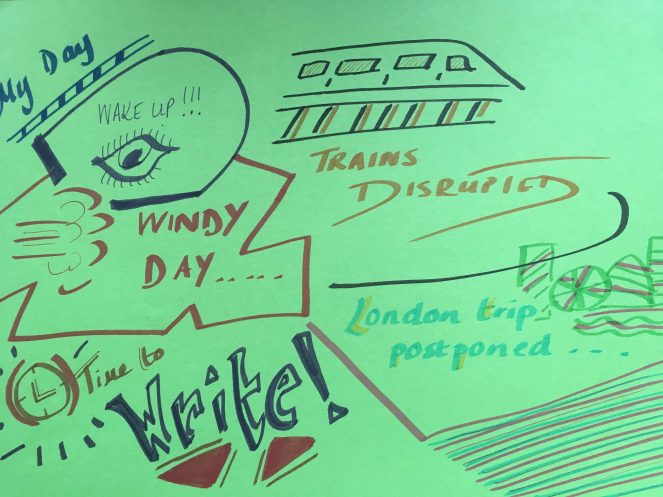 My Day
WAKE UP!!!
WINDY
DAY.....
TRAINS
DISRUPTED
London trip
postponed ....
Time to
Write!